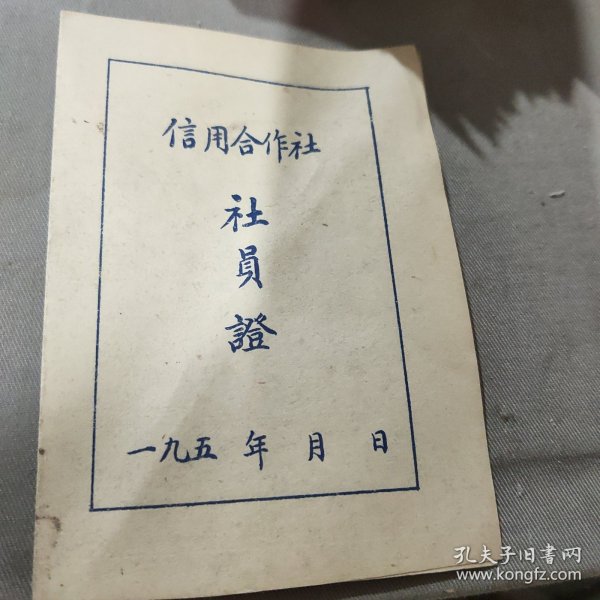 信用合作社
社
員
證
一九五 年 月 日
孔夫子旧书网
www.kongfz.com